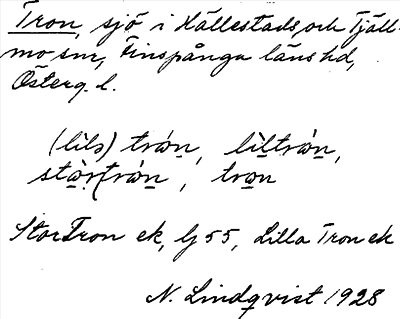 Tron, sjö i Hällestads och Tjäll-
mo snr, Finspånga läns hd,
Österg. l.
(lìlə) trón, lìltrón,
stòr̀trón, tron
Stor Tron ek, lj 55, Lilla Tron ek
N. Lindqvist 1928